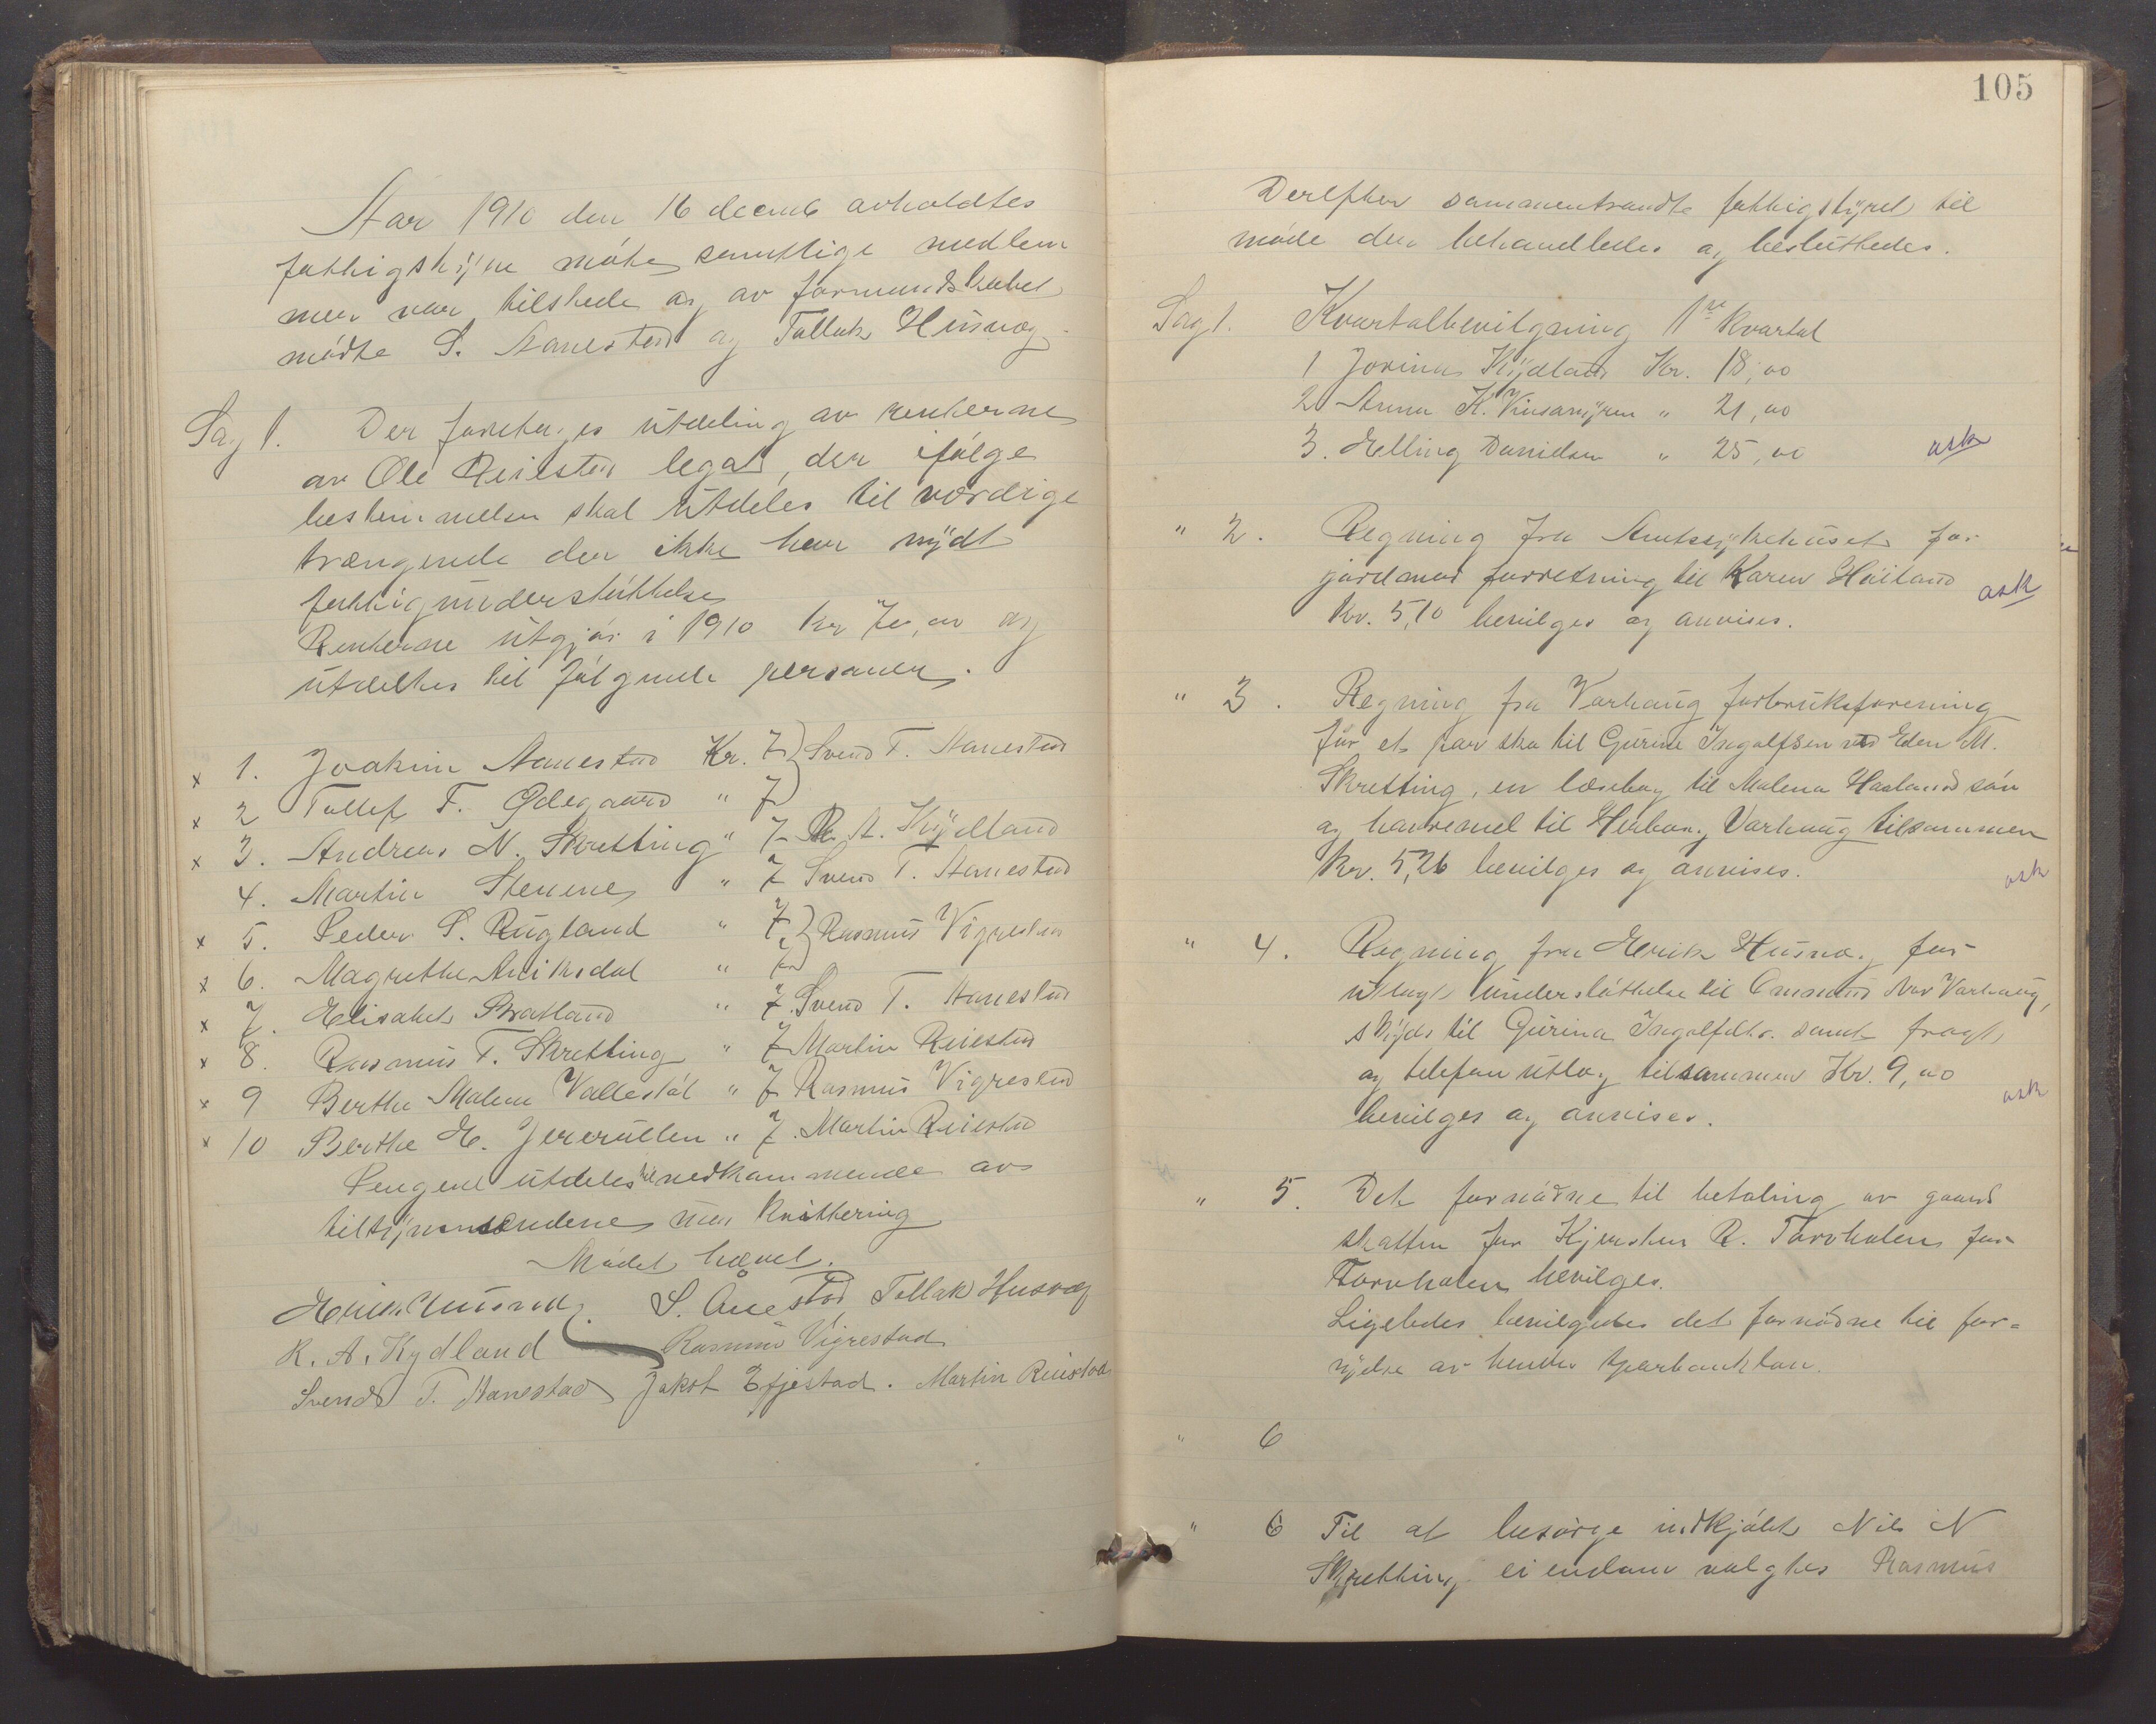 Aar 1910 den 16 decemb avholdtes
fattigstyre møte samtlige medlem
mer var tilstede og av formandskabet
mødte S. Aanestad og Tollak Husvæg.
Sag 1. Der foretages utdeling av renterne
av Ole Reiestad legat, der ifølge
bestemmelsen skal utdeles til værdige
trængende der ikke har nydt
fattigunderstøttelse
Renterne utgjør i 1910 kr 70,00 og
utdeltes til følgende personer.
x 1. Joakim Aanestad Kr. 7 } Svend T. Aanestad
x 2 Tollef T. Ødegaard " 7
x 3. Andreas N. Skretting " 7 R. A. Kydland
4. Martin Stenene " 7 Svend T. Aanestad
x 5. Peder S. Rugland " 7 } Rasmus Vigrestad
x 6. Magrethe Aniksdal " 7
x 7. Elisabet Bratland " 7. Svend T. Aanestad
x 8. Rasmus T. Skretting " 7 Martin Reiestad
x 9 Berthe Malene Vallestøl " 7 Rasmus Vigrestad
x 10 Berthe E. " 7. Martin Reiestad
Pengene utdeles til vedkommende av
tilsynsmændene mod kvittering
Mødet hævet.
Erik Husvæg. S. Anestad Tollak Husvæg
R. A. Kydland Rasmus Vigrestad
Svend T. Aanestad Jakob Efjestad. Martin Reiestad
105
Derefter sammentraadte fattigstyret til
møde der behandledes og besluttedes.
Sag 1. Kvartalbevilgning 1re Kvartal
1 Jorina Kydland Kr. 18,00
2 Anna K. Vinsamyren " 21,00
3. Elling Danielsen " 25,00 ask
" 2. Regning fra Amtssykehuset for
jordmorforretning til Karen Høiland
Kr. 5,10 bevilges og anvises. ask
" 3. Regning fra Varhaug forbruksforening
for et par sko til Gurine Ingolfsen ved Eden M.
Skretting, en læsebog til Malena Haaland søn
og havremel til Herborg Varhaug tilsammen
Kr. 5,26 bevilges og anvises. ask
" 4. Regning fra Erik Husvæg for
utlagt understøttelse til Omund Nor Varhaug,
skyds til Gurina Ingolfsdtr. samt fragt
og telefon utlæg tilsammen Kr. 9,00
bevilges og anvises. ask
" 5. Det fornødne til betaling av gaard
skatten for Kjersten R. Torvholen for
Torvholen bevilges.
Ligeledes bevilgedes det fornødne til for=
nyelse av hendes sparbanklan.
" 6
" 6 Til at besørge indkjøbt Nils N
Skretting eiendom valgtes Rasmus